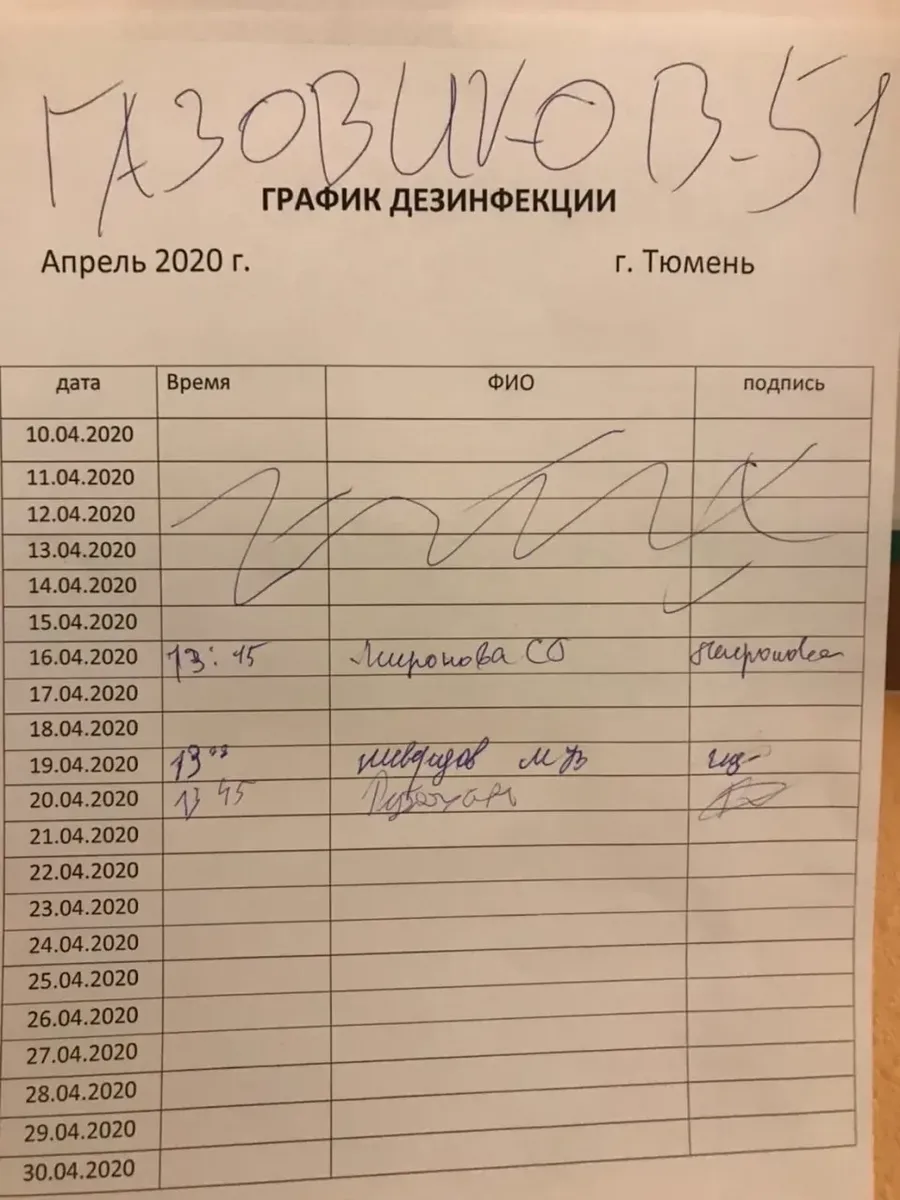 ГАЗОВИКОВ-51
ГРАФИК ДЕЗИНФЕКЦИИ
Апрель 2020 г. г. Тюмень
дата Время ФИО подпись
10.04.2020
11.04.2020
12.04.2020
13.04.2020
14.04.2020
15.04.2020
16.04.2020 13:45 Миронова СО Миронова
17.04.2020
18.04.2020
19.04.2020 13
20.04.2020 13 45
21.04.2020
22.04.2020
23.04.2020
24.04.2020
25.04.2020
26.04.2020
27.04.2020
28.04.2020
29.04.2020
30.04.2020